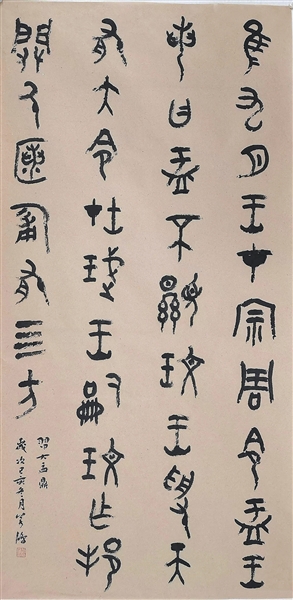 隹九月王才宗周令盂王
若曰盂不顯玟王受天
有大令在珷王嗣玟乍邦
闢氒匿匍有三方
習大盂鼎
歲次己亥年月